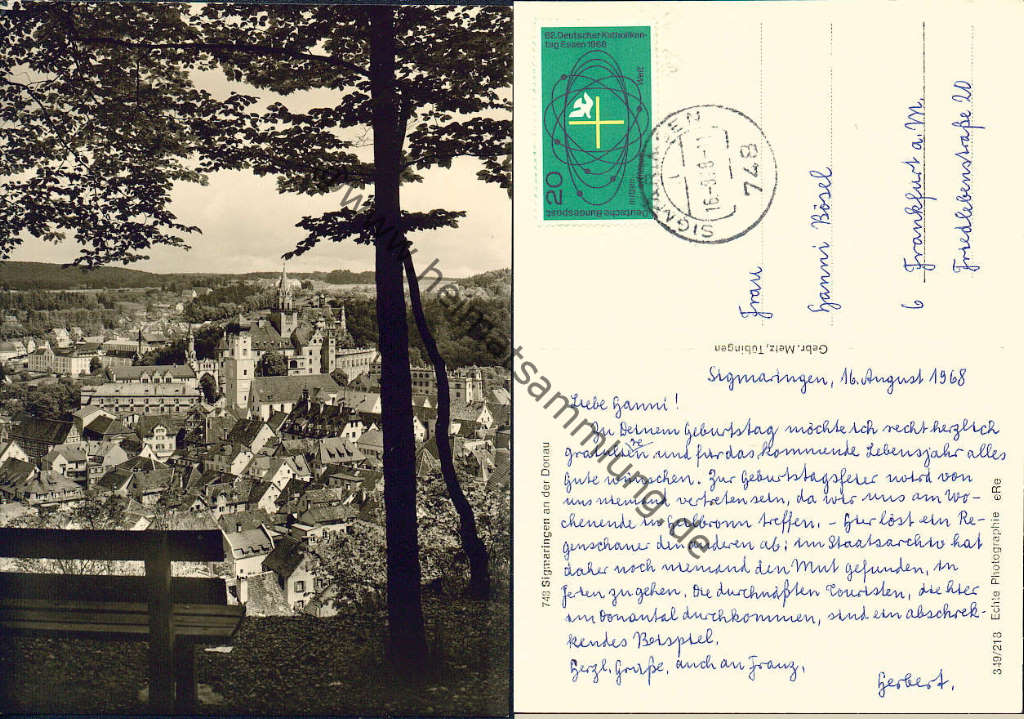 82. Deutscher Katholiken-
tag Essen 1968
mitten in dieser Welt
20
Deutsche Bundespost
SIGMARINGEN
748
16.8.68
Frau
Hanni Bösel
6 Frankfurt a. M.
Friedlebenstraße 20
Gebr. Metz, Tübingen
Sigmaringen, 16. August 1968
Liebe Hanni!
Zu Deinem Geburtstag möchte ich recht herzlich
gratulieren und für das kommende Lebensjahr alles
Gute wünschen. Zur Geburtstagsfeier wird von
uns niemand vertreten sein, da wir uns am Wo-
chenende in Heilbronn treffen. – Hier löst ein Re-
genschauer den anderen ab; im Staatsarchiv hat
daher noch niemand den Mut gefunden, in
Ferien zu gehen. Die durchnäßten Touristen, die hier
im Donautal durchkommen, sind ein abschrek-
kendes Beispiel.
Herzl. Grüße, auch an Franz,
Herbert.
748 Sigmaringen an der Donau
349/218 Echte Photographie eRe
www.heimatsammlung.de